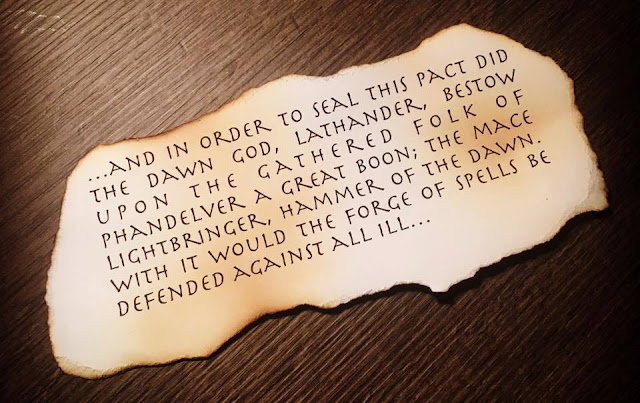 ...AND IN ORDER TO SEAL THIS PACT DID
THE DAWN GOD, LATHANDER, BESTOW
UPON THE GATHERED FOLK OF
PHANDELVER A GREAT BOON; THE MACE
LIGHTBRINGER, HAMMER OF THE DAWN.
WITH IT WOULD THE FORGE OF SPELLS BE
DEFENDED AGAINST ALL ILL...